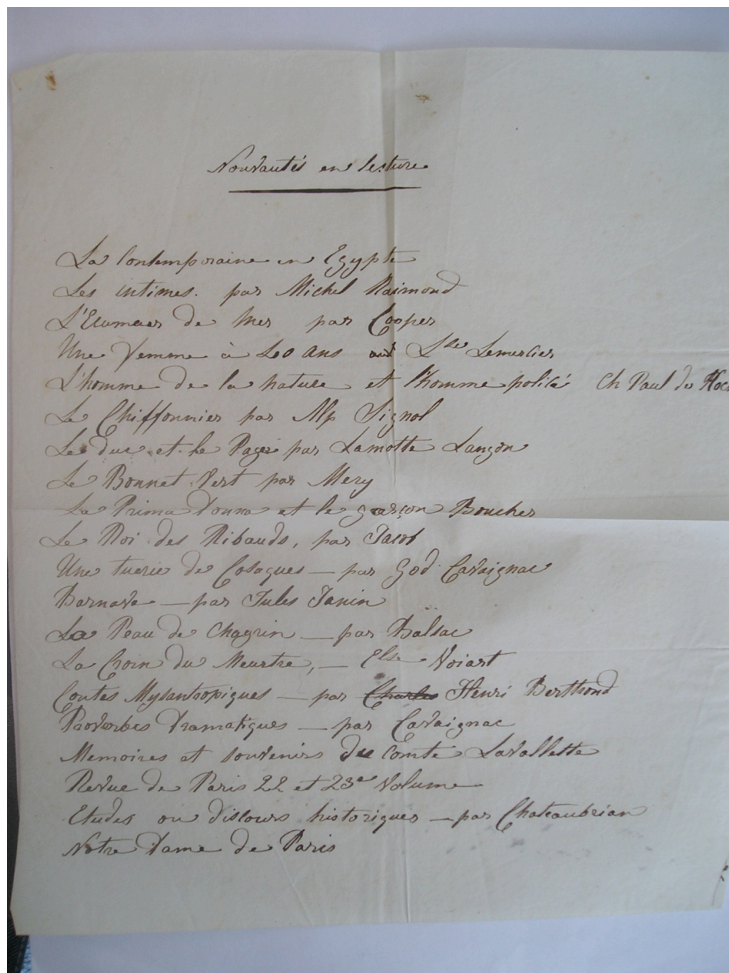 Nouvautés en lecture
La Contemporaine en Egypte
Les intimes. par Michel Raimond
L'Ecumeur de Mer par Cooper
Une Femme à 40 ans Lemercier
L'homme de la nature et l'homme policé Ch Paul de Kock
Le Chiffonnier par Alp Signol
Le duc et le Page par Lamotte Langon
Le Bonnet Vert par Mery
La Prima Donna et le garçon Boucher
Le Roi des Ribauds, par Jacob
Une tuerie de Cosaques — par God Cavaignac
Barnave — par Jules Janin
La Peau de Chagrin — par Balsac
La Croix du Meurtre, — Else Voiart
Contes Mysantropiques — par Charles Henri Berthoud
Proverbes Dramatiques — par Cavaignac
Memoires et souvenirs du comte Lavallette
Revue de Paris 22 et 23e Volume
Etudes ou discours historiques — par Chateaubrian
Notre Dame de Paris